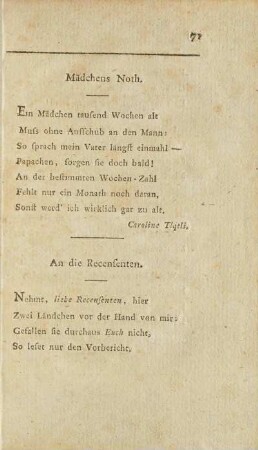 71
Mädchens Noth.
Ein Mädchen tausend Wochen alt
Muss ohne Aufschub an den Mann:
So sprach mein Vater längst einmahl —
Papachen, sorgen sie doch bald!
An der bestimmten Wochen-Zahl
Fehlt nur ein Monath noch daran,
Sonst werd' ich wirklich gar zu alt.
Caroline
An die Recensenten.
Nehmt, liebe Recensenten, hier
Zwei Bändchen vor der Hand von mir:
Gefallen sie durchaus Euch nicht,
So leset nur den Vorbericht.